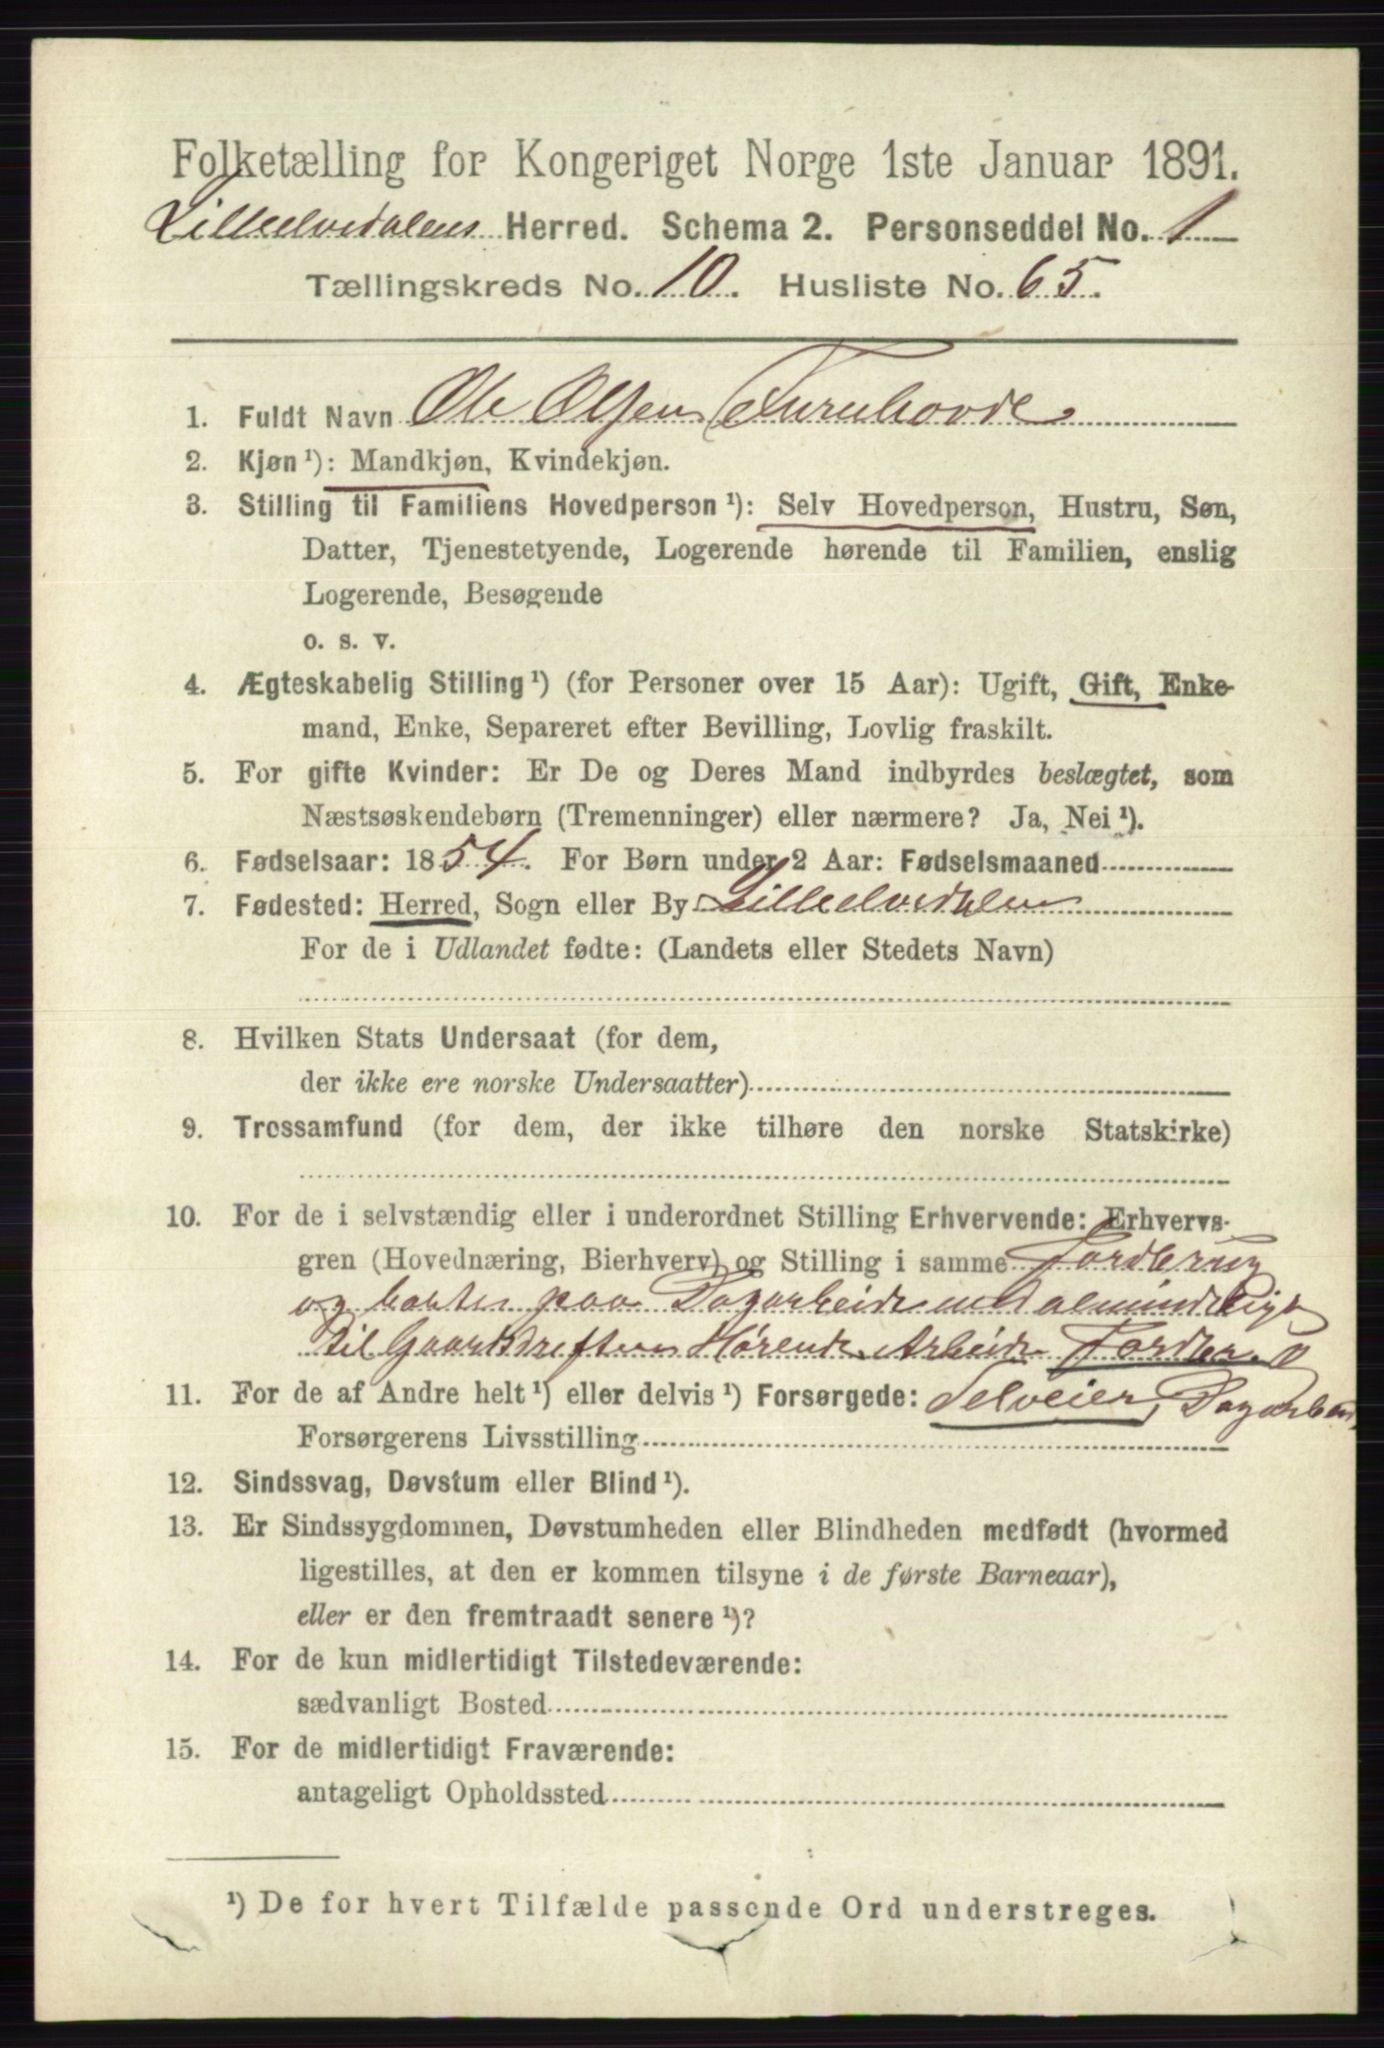 Folketælling for Kongeriget Norge 1ste Januar 1891.
Lilleelvedalens Herred. Schema 2. Personseddel No. 1
Tællingskreds No. 10. Husliste No. 65.
1. Fuldt Navn Ole Olsen Furuhovde
2. Kjøn ¹): Mandkjøn, Kvindekjøn.
3. Stilling til Familiens Hovedperson ¹): Selv Hovedperson, Hustru, Søn,
Datter, Tjenestetyende, Logerende hørende til Familien, enslig
Logerende, Besøgende
o. s. v.
4. Ægteskabelig Stilling ¹) (for Personer over 15 Aar): Ugift, Gift, Enke-
mand, Enke, Separeret efter Bevilling, Lovlig fraskilt.
5. For gifte Kvinder: Er De og Deres Mand indbyrdes beslægtet, som
Næstsøskendebørn (Tremenninger) eller nærmere? Ja, Nei ¹).
6. Fødselsaar: 1854. For Børn under 2 Aar: Fødselsmaaned
7. Fødested: Herred, Sogn eller By Lilleelvedalen
For de i Udlandet fødte: (Landets eller Stedets Navn)
8. Hvilken Stats Undersaat (for dem,
der ikke ere norske Undersaatter)
9. Trossamfund (for dem, der ikke tilhøre den norske Statskirke)
10. For de i selvstændig eller i underordnet Stilling Erhvervende: Erhvervs-
gren (Hovednæring, Bierhverv) og Stilling i samme Jordbrug
og paa Dagarbeide med almindelige
til Gaardsdriften Hørende Arbeide Jordbr.
11. For de af Andre helt ¹) eller delvis ¹) Forsørgede: Selveier, Dagarbeid
Forsørgerens Livsstilling
12. Sindssvag, Døvstum eller Blind ¹).
13. Er Sindssygdommen, Døvstumheden eller Blindheden medfødt (hvormed
ligestilles, at den er kommen tilsyne i de første Barneaar),
eller er den fremtraadt senere ¹)?
14. For de kun midlertidigt Tilstedeværende:
sædvanligt Bosted
15. For de midlertidigt Fraværende:
antageligt Opholdssted
¹) De for hvert Tilfælde passende Ord understreges.